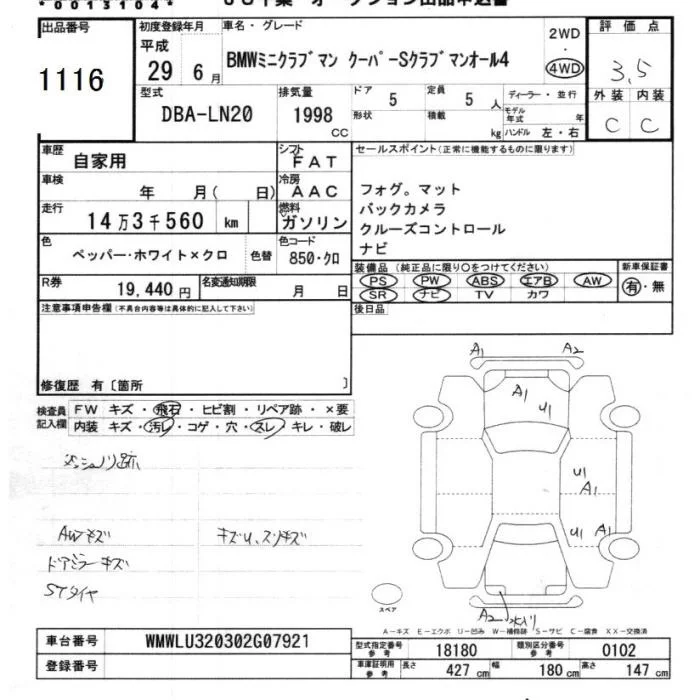 *00131​04*
出品番号
1116
初度登録年月
平成
29年 6月
車名・グレード
BMWミニクラブマン クーパーSクラブマンオール4
2WD
・
4WD
評価点
3.5
外装 内装
C C
型式
DBA-LN20
排気量
1998
CC
ドア 5
形状
定員 5 人
積載 kg
ディーラー・並行
モデル年式 年
ハンドル 左・右
車歴
自家用
シフト
FAT
セールスポイント(正常に機能するものに限ります)
車検
年 月( 日)
冷房
AAC
フォグ。マット
走行
14万3千560 km
燃料
ガソリン
バックカメラ
クルーズコントロール
ナビ
色
ペッパー・ホワイト×クロ
色替
色コード
850・クロ
装備品(純正品に限り○をつけてください)
PS PW ABS エアB AW
SR ナビ TV カワ
新車保証書
有・無
R券
19,440 円
名変通知期限
月 日
後日品
注意事項申告欄(不具合内容等は具体的に記入して下さい)
修復歴 有〔箇所 〕
検査員
記入欄
FW キズ・飛石・ヒビ割・リペア跡・×要
内装 キズ・汚レ・コゲ・穴・スレ・キレ・破レ
AWキズ
キズU、スリキズ
ドアミラーキズ
STタイヤ
A1 A2
A1
U1
U1
A1
U1 A1
A2
スペア
A-キズ E-エクボ U-凹み W-補修跡 S-サビ C-腐食 XX-交換済
車台番号
WMWLU320302G07921
登録番号
型式指定番号
参考
18180
類別区分番号
参考
0102
車庫証明用
参考
長さ 427 cm
幅 180 cm
高さ 147 cm